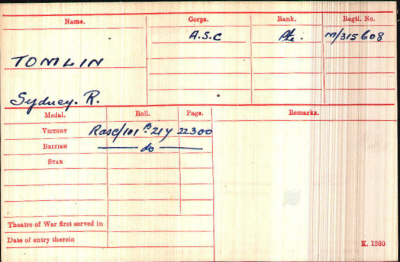 Name. Corps. Rank. Regtl. No.
A.S.C Pte. M/315608
TOMLIN
Sydney. R.
Medal. Roll. Page. Remarks.
VICTORY RASC/101 B.217 22300
BRITISH do
STAR
Theatre of War first served in
Date of entry therein
K. 1380